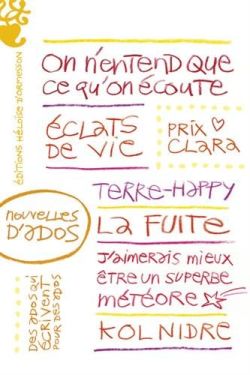 ÉDITIONS HÉLOÏSE D'ORMESSON
On n'entend que
ce qu'on écoute
éclats
de vie
Prix ♡
Clara
Terre-Happy
nouvelles
d'ados
La fuite
J'aimerais mieux
être un superbe
météore ☆
des ados qui
écrivent
pour des ados
Kol nidre